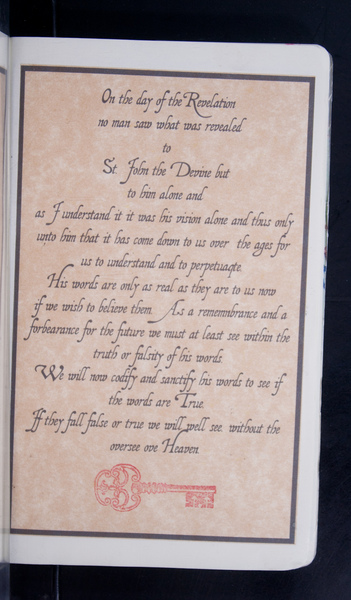 On the day of the Revelation
no man saw what was revealed
to
St. John the Devine but
to him alone and
as I understand it it was his vision alone and thus only
unto him that it has come down to us over the ages for
us to understand and to perpetuaqte.
His words are only as real as they are to us now
if we wish to believe them. As a rememnbrance and a
forbearance for the future we must at least see within the
truth or falsity of his words
We will now codify and sanctify his words to see if
the words are True.
If they fall false or true we will well see without the
oversee ove Heaven